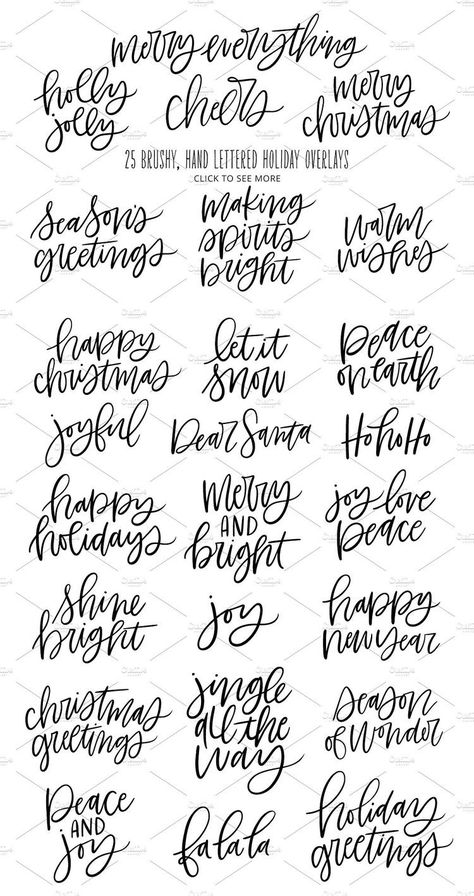 merry everything
holly
jolly
cheers
merry
christmas
25 BRUSHY, HAND LETTERED HOLIDAY OVERLAYS
CLICK TO SEE MORE
season's
greetings
making
spirits
bright
warm
wishes
happy
christmas
let it
snow
peace
on earth
joyful
Dear Santa
HoHoHo
happy
holidays
Merry
AND
bright
joy love
peace
shine
bright
joy
happy
new year
christmas
greetings
jingle
all the
way
season
of wonder
Peace
AND
joy
falala
holiday
greetings